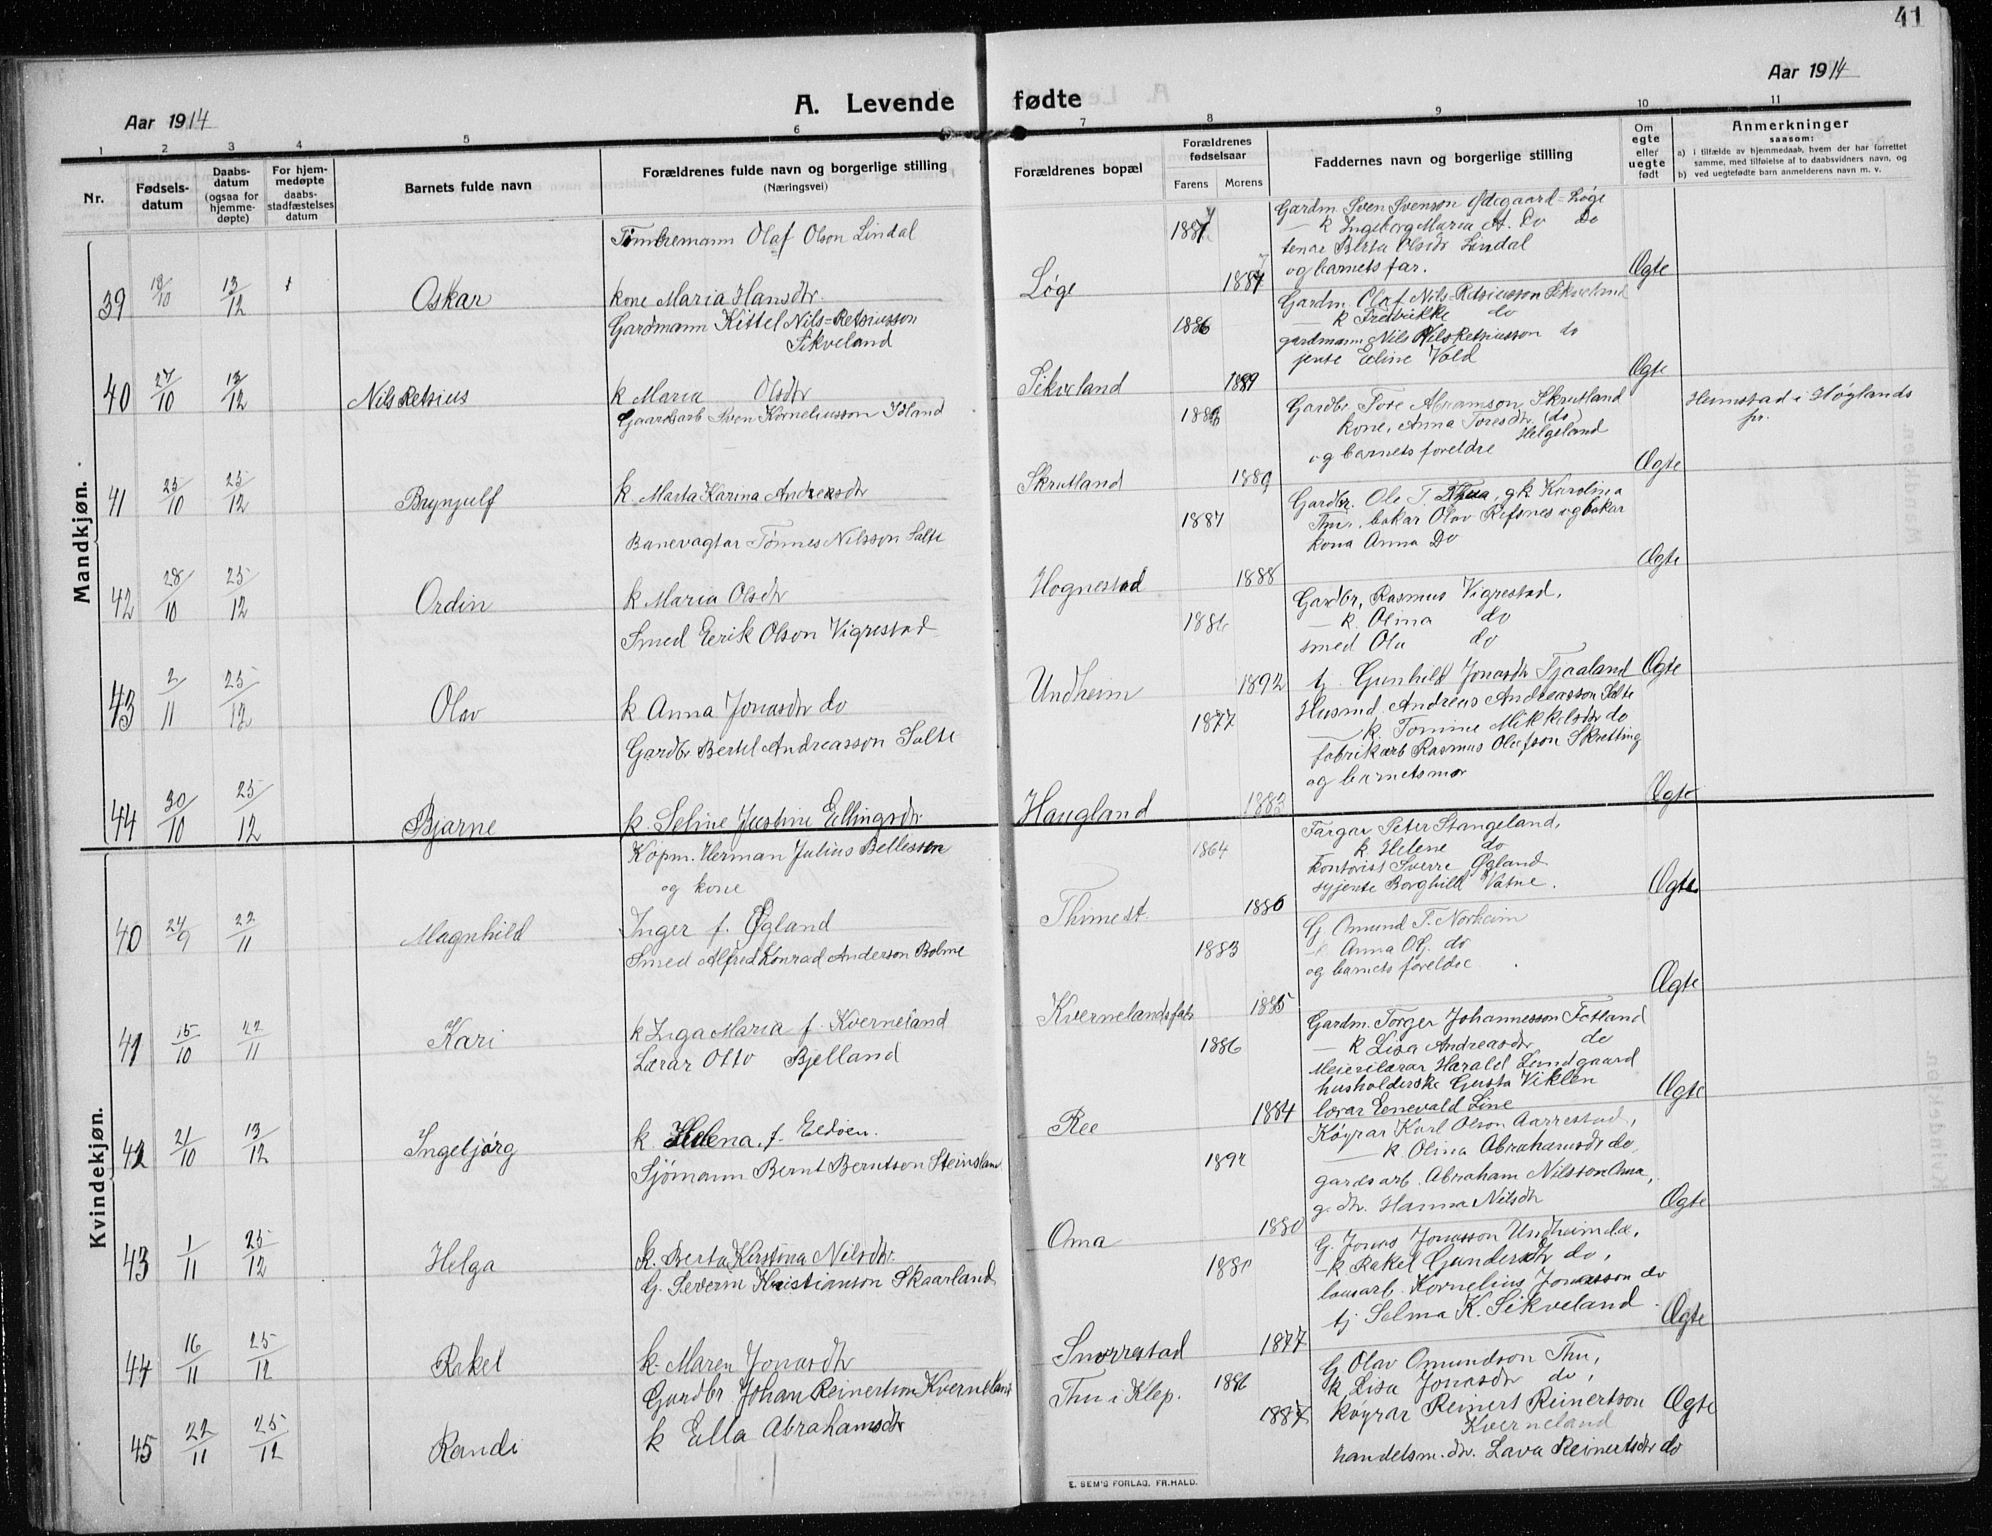 41
Aar 1914
A. Levende fødte
Aar 1914
1 2 3 4 5 6 7 8 9 10 11
Nr.
Fødselsdatum
Daabsdatum (ogsaa for hjemmedøpte)
For hjemmedøpte daabsstadfæstelses datum
Barnets fulde navn
Forældrenes fulde navn og borgerlige stilling
(Næringsvei)
Forældrenes bopæl
Forældrenes fødselsaar
Farens Morens
Faddernes navn og borgerlige stilling
Om egte eller uegte født
Anmerkninger
saasom:
a) i tilfælde av hjemmedaab, hvem der har forrettet samme, med tilføielse af to daabsvidners navn, og
b) ved uegtefødte barn anmelderens navn m. v.
Mandkjøn.
39 18/10 13/12 Oskar
Tømremann Olaf Olson Lindal
kone Maria Hansdtr.
Løge 1887 1887
Gardm. Sven Svenson Ødegaard=Løge
— k Ingeborg Maria A. Do Do
tenar Berta Olsdtr Lindal
og barnets far.
Ægte
40 27/10 13/12 Nils Retsius
Gardmann Kittel Nils=Retsiusson
Sikveland
k Maria Olsdtr
Sikveland 1886 1889
Gardm. Olaf Nils=Retsiusson Sikveland
— k Fredrikke do
gardmann Nils Nils Retsiusson do
jente Eline Vold
Ægte
41 25/10 25/12 Brynjulf
Gaardsarb Sven Korneliusson Island
k. Marta Karina Andreasdtr
Skrutland 1889
Gardbr Tore Abramson Skrutland
kone, Anna Toresdtr (do)
Helgeland
og barnets foreldre
Ægte
Heimstad i Høglands pr.
42 28/10 25/12 Ordin
Banevagtar Tønnes Nilsson Salte
k Maria Olsdtr
Hognestad 1887 1888
Gardbr. Ole T. Thu, g k Karolina
Thu, bakar Olav Refsnes og bakar
kona Anna Do
Ægte
43 2/11 25/12 Olav
Smed Eerik Olson Vigrestad
k Anna Jonasdtr do
Undheim 1886 1892
Gardbr, Rasmus Vigrestad,
— k. Olina do
smed Ola do
tj. Gunhild Jonasdtr Tjaaland
Ægte
44 30/10 25/12 Bjarne
Gardbr Bertel Andreasson Salte
k. Seline Justine Ellingsdtr.
Haugland 1877 1883
Husmd. Andreas Andreasson Salte
— k. Tomine Mikkelsdtr do
fabrikarb Rasmus Olafson Skretting
og barnetsmor
Ægte
Kvindekjøn.
40 24/9 22/11 Magnhild
Kopm. Herman Julius Bellesen
og kone
Inger f. Øgland
Thimest. 1864 1886
Fargar Peter Stangeland,
k Helene do
Kontorist Sverre Øgland
syjente Borghild Vatne.
Ægte
41 15/10 22/11 Kari
Smed Alfred Konrad Anderson Bolme
k Inga Maria f. Kverneland
Kvernelandsfab. 1883 1885
G. Omund T. Norheim
Anna O.G. do
og barnets foreldre
Ægte
42 21/10 13/12 Ingebjørg
Lærar Otto Bjelland
k Helena. f. Eldøen.
Ree 1886 1884
Gardm. Torger Johannesson Fotland
— k Lisa Andreasdtr do
Meierilærar Harald Lundgaard
husholderske Gusta Viklen
lærar Enevald Line
Ægte
43 1/11 25/12 Helga
Sjømann Bernt Berntson Steinsland
k. Berta Kirstina Nilsdtr.
Oma 1892 1880
Køyrar Karl Olson Aarrestad,
— k. Olina Abrahamsdtr do,
gardsarb. Abraham Nilsson Oma,
g. dtr. Hanna Nilsdtr
Ægte
44 16/11 25/12 Rakel
G. Severin Kristianson Skaarland
k. Maren Jonasdtr
Snorrestad 1877
G. Jonas Jonasson Undheim
k Rakel Gundersdtr do,
lausarb. Kornelius Jonasson do
tj Selma K. Sikveland
Ægte
45 22/11 25/12 Randi
Gardbr Johan Reinertson Kverneland
k Ella Abrahamsdtr
Thu i Klep. 1886 1887
G Olav Omundson Thu,
k Lisa Jonasdtr do,
køyrar Reinert Reinertson
Kverneland
handelsm. dtr. Lava Reinertsdtr do
Ægte
E. SEM'S FORLAG, FR.HALD.